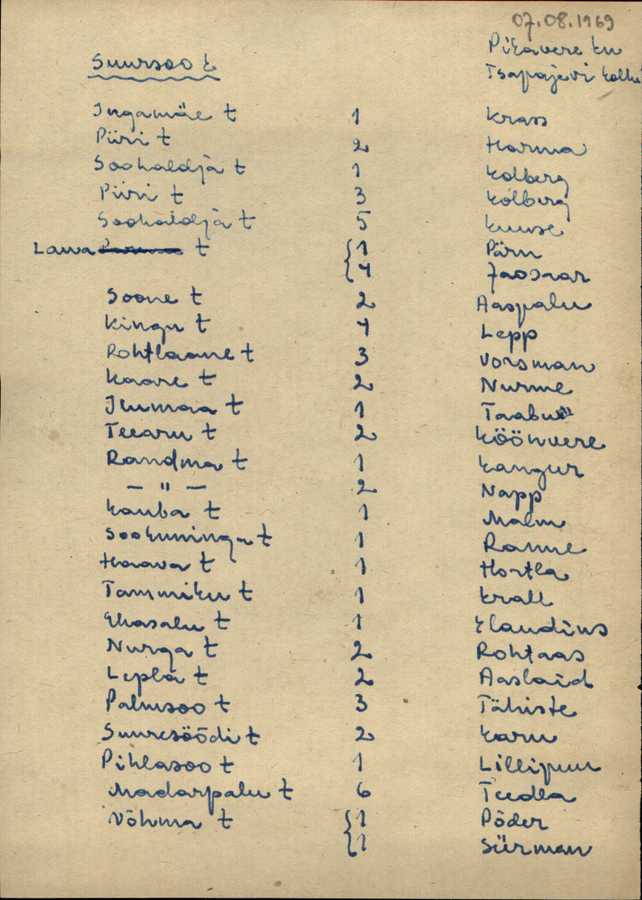 07.08.1969
Pikavere kn
Suursoo k
Tsapajevi kolh
Ingamäe t 1 Krass
Piiri t 2 Harma
Soohaldja t 1 Kolberg
Piiri t 3 Kolberg
Soohaldja t 5 Kuuse
Lauva t { 1 Pärn
4 Jaosaar
Soone t 2 Aaspalu
Kingu t 4 Lepp
Rohtlaane t 3 Vorsman
Kaare t 2 Nurme
Ilumaa t 1
Teearu t 2 Köönvere
Randma t 1 Kangur
— " — 2 Napp
Kauba t 1 Malm
Sookuninga t 1 Ranne
Haava t 1 Hortla
Tammiku t 1 Krall
Ehasalu t 1 Klaudius
Nurga t 2 Rohtaas
Lepla t 2 Aaslaid
Palusoo t 3 Tähiste
Suuresöödi t 2 Karu
Pihlasoo t 1 Lillipuu
Madarpalu t 6 Teedla
Võhma t { 1 Põder
1 Sürman